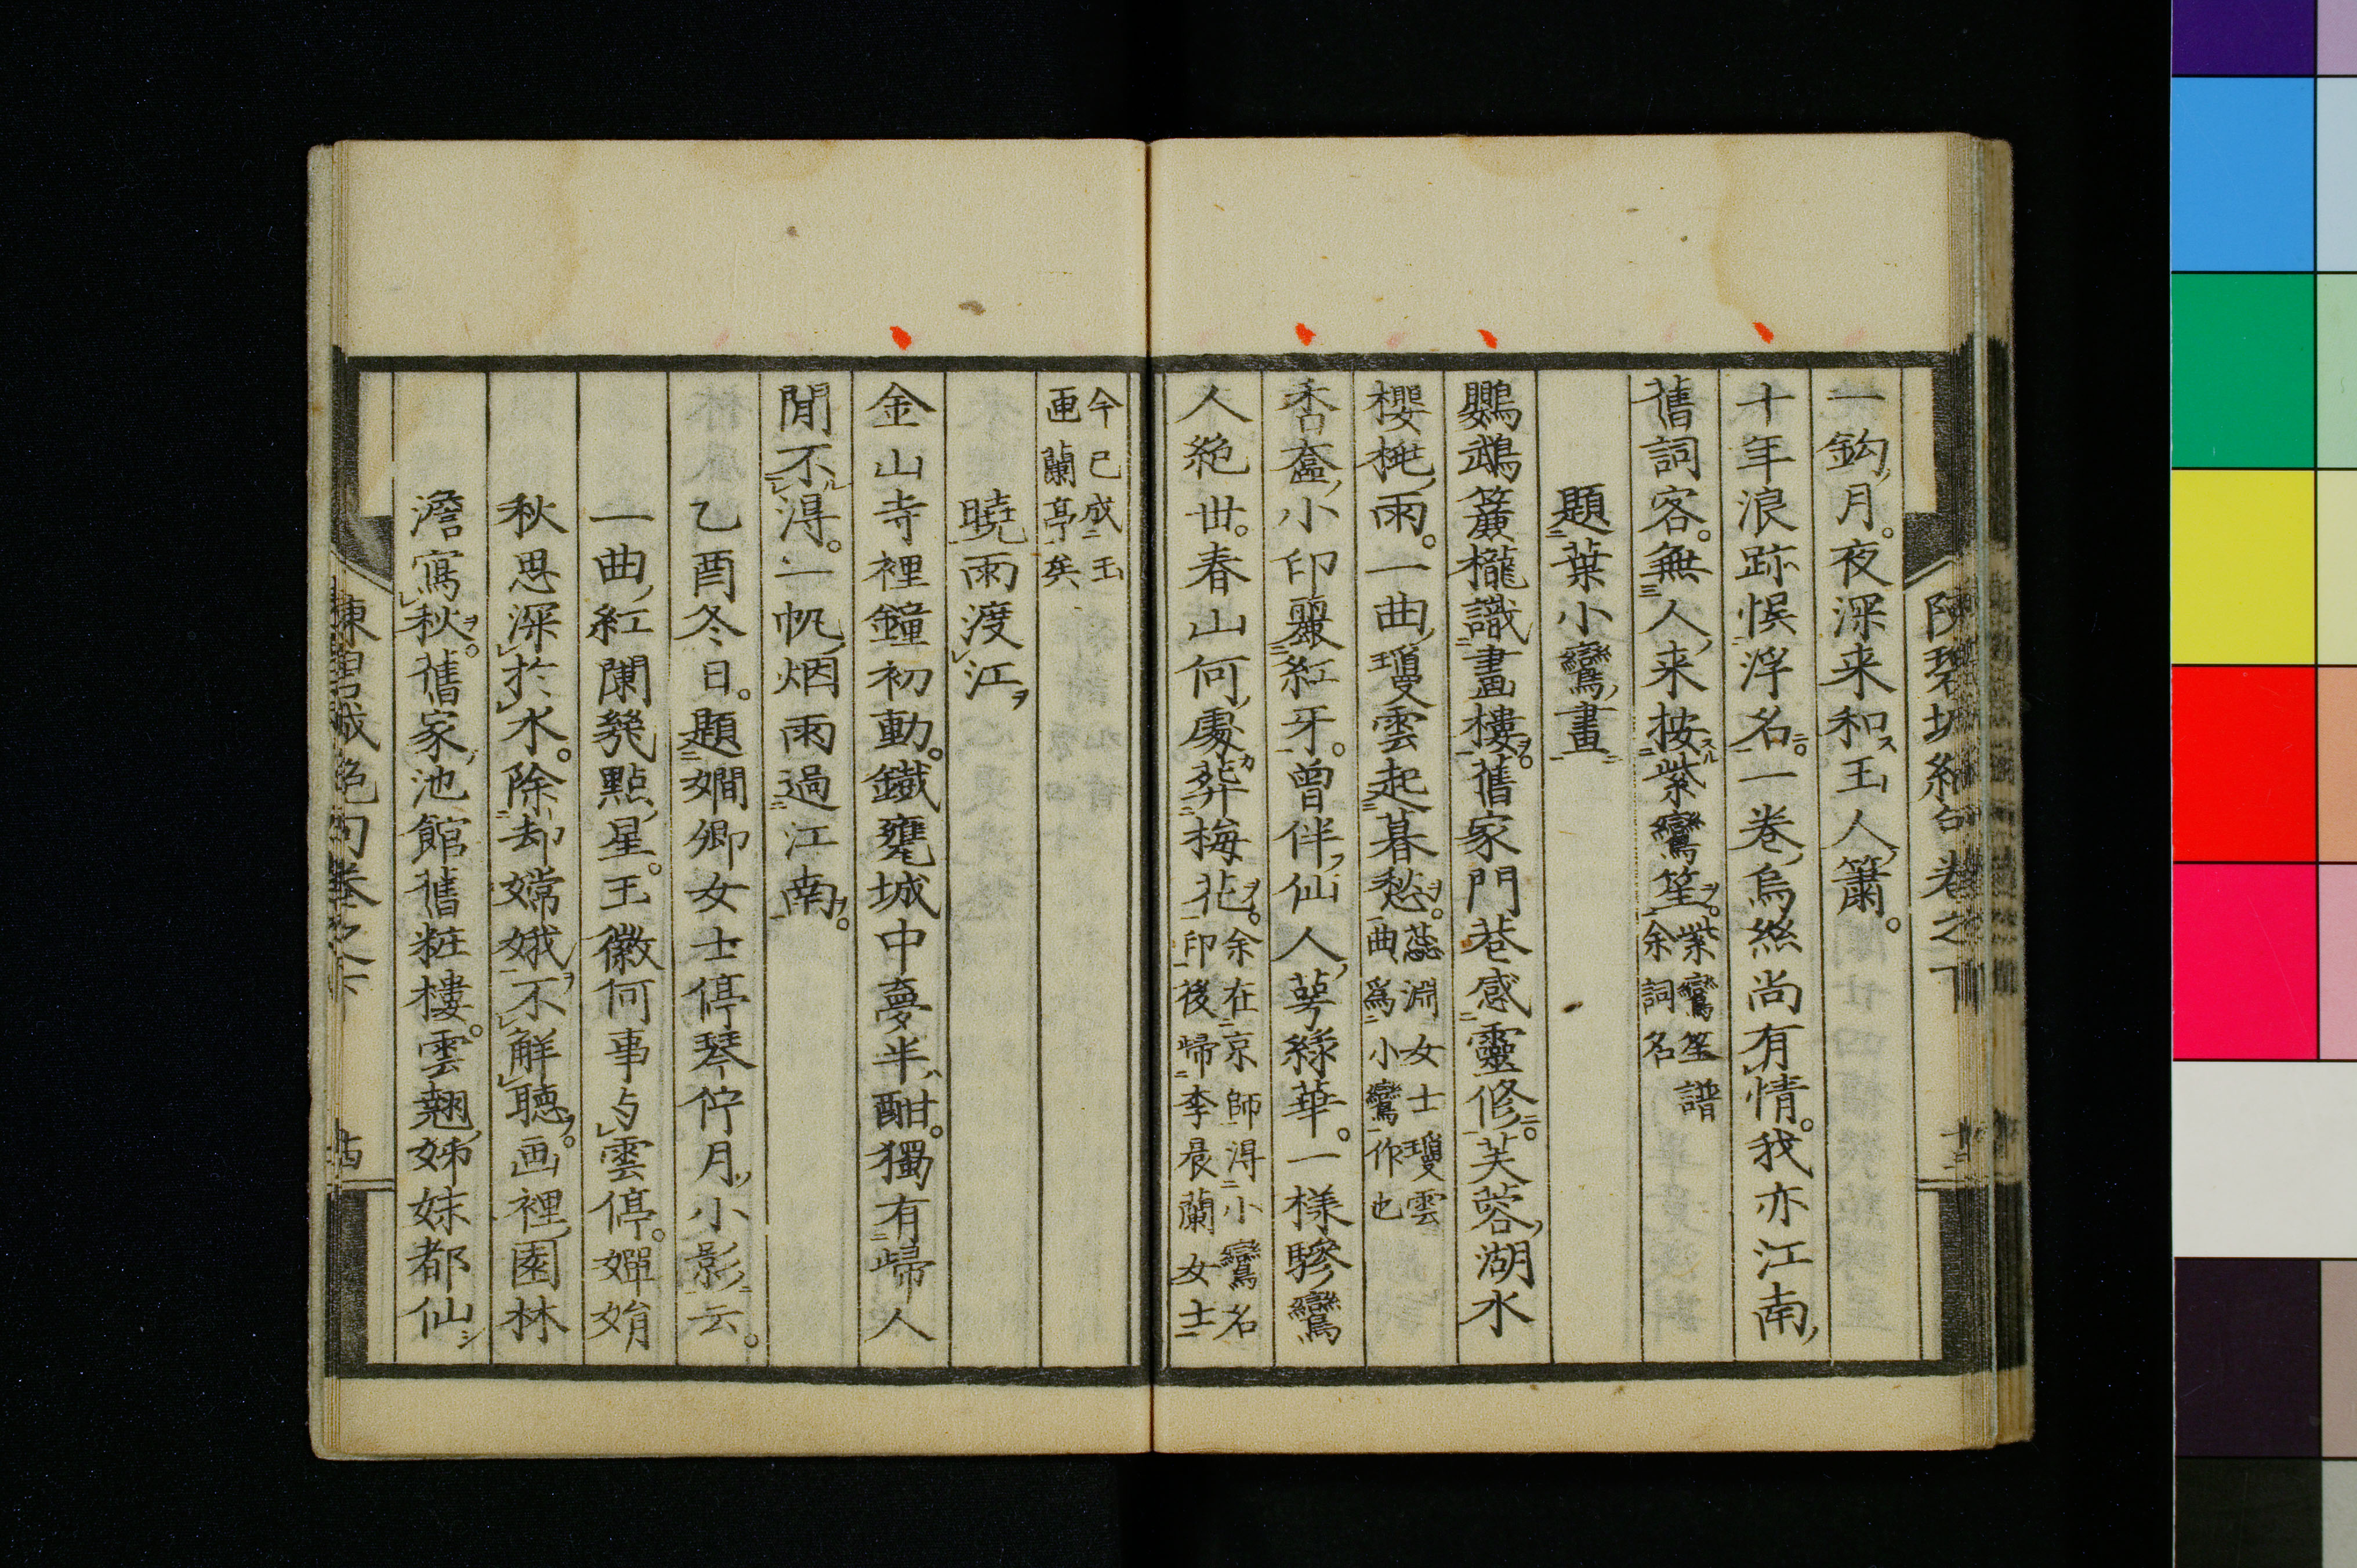 陳碧城絶句卷之下 十三
一鈎月。夜深来和玉人簫。
十年浪跡悞浮名。一卷烏絲尚有情。我亦江南
舊詞客。無人来按紫鸞笙。紫鸞笙譜
余詞名
題葉小鸞畫
鸚鵡簾櫳識畫樓。舊家門巷感靈修。芙蓉湖水
櫻桃雨。一曲瓊雲起暮愁。蕊淵女士瓊雲
曲為小鸞作也
香奩小印麗紅牙。曾伴仙人萼緑華。一樣驂鸞
人絶世。春山何處葬梅花。余在京師得小鸞名
印後歸李晨蘭女士
今已成玉
匣蘭亭矣
曉雨渡江
金山寺裡鐘初動。鐵甕城中夢半酣。獨有歸人
閒不得。一帆烟雨過江南。
乙酉冬日。題嫺卿女士停琴佇月小影云。
一曲紅闌幾點星。玉徽何事与雲停。嬋娟
秋思深於水。除却嫦娥不解聴。画裡園林
澹寫秋。舊家池館舊粧樓。雲翹姊妹都仙
陳碧城絶句卷之下 十四